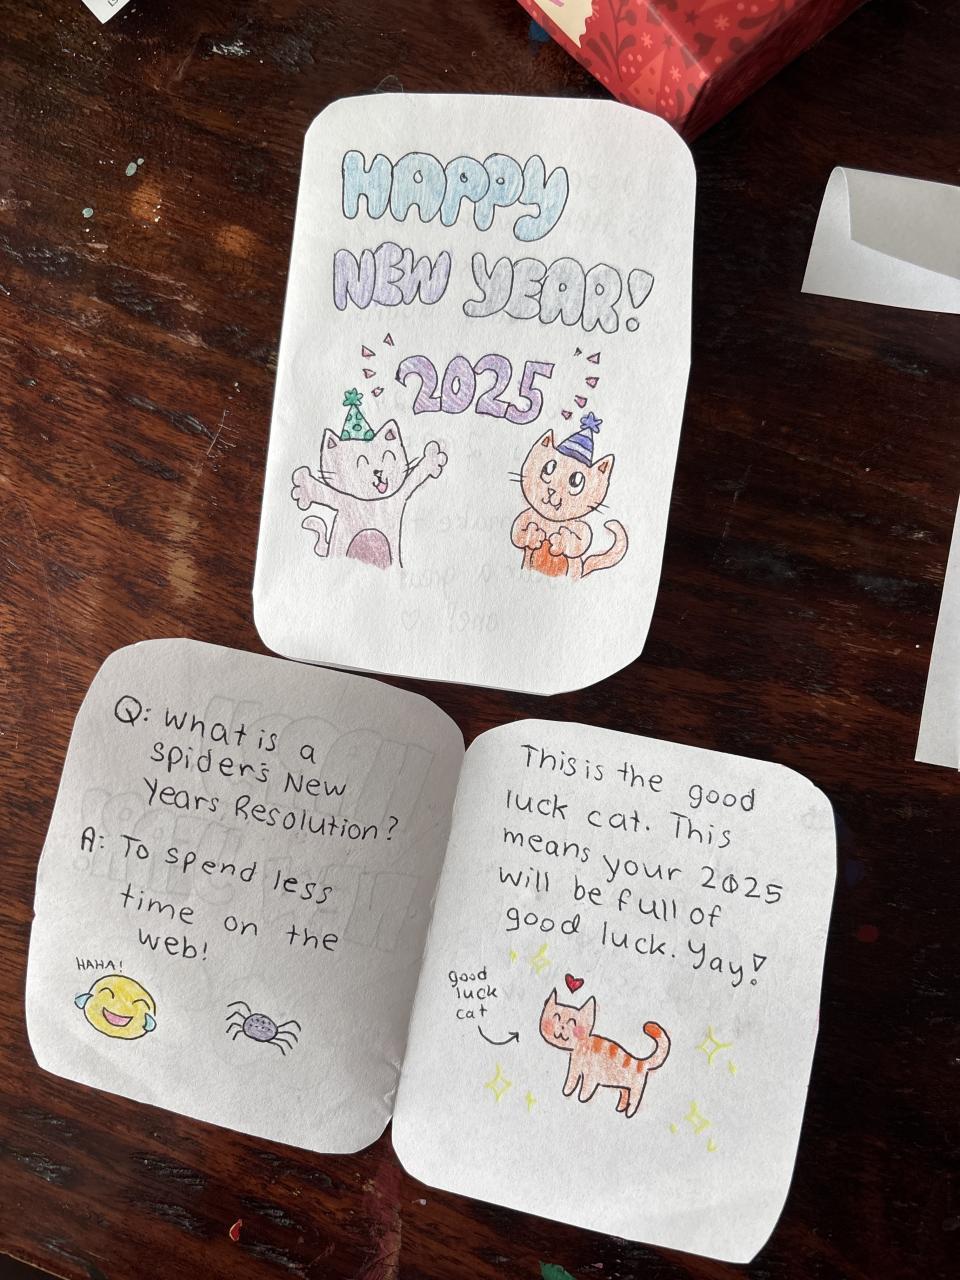 HAPPY
NEW YEAR!
2025
Q: What is a
spider's New
Years Resolution?
A: To spend less
time on the
web!
HAHA!
This is the good
luck cat. This
means your 2025
will be full of
good luck. Yay!
good
luck
cat